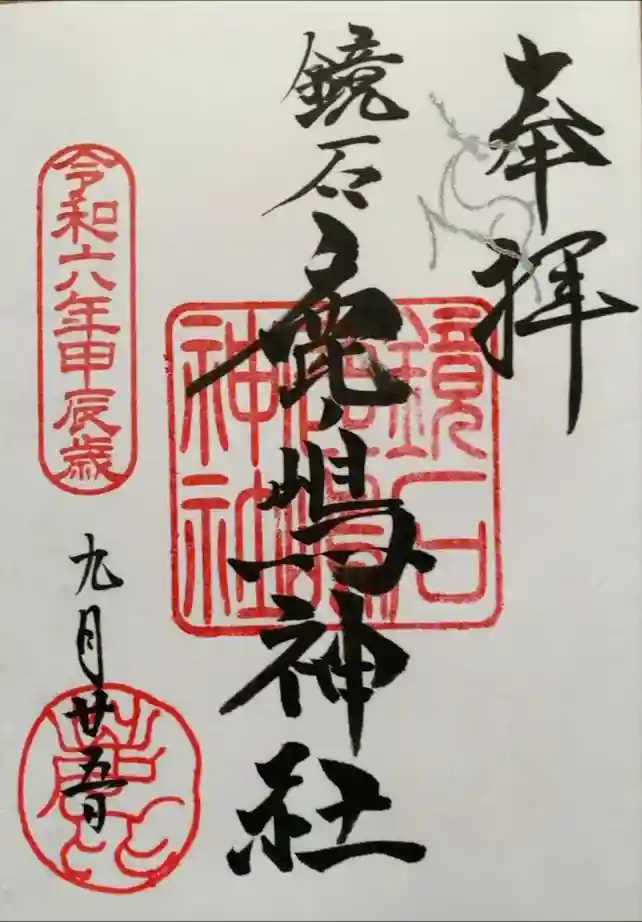 奉拝
鏡石
鹿嶋神社
鏡石
鹿嶋
神社
令和六年甲辰歳
九月廿五日